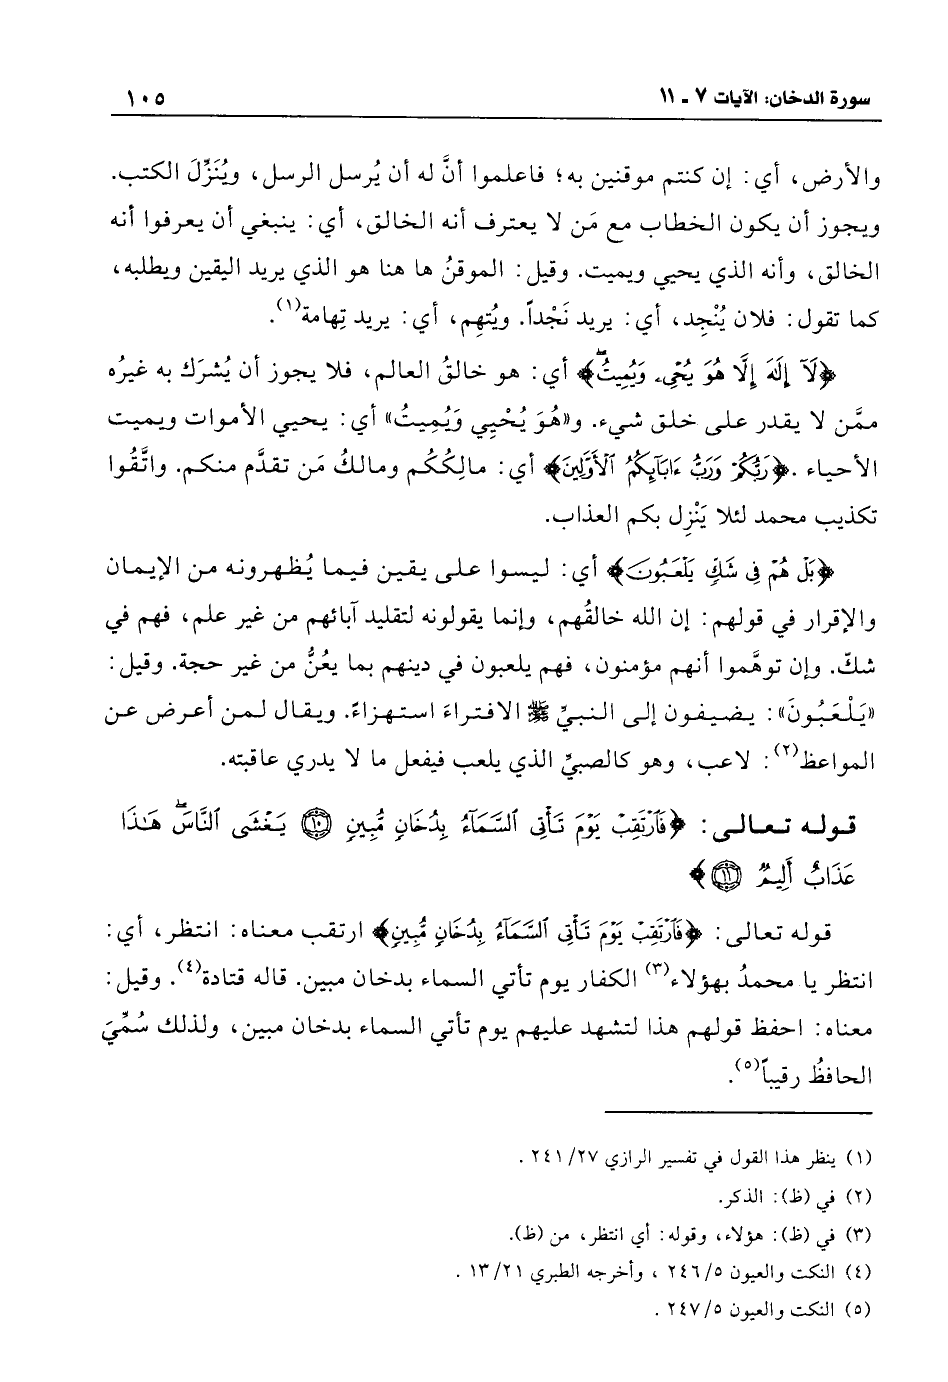 سورة الدخان: الآيات ٧ ـ ١١
١٠٥
والأرض، أي: إن كنتم موقنين به؛ فاعلموا أنَّ له أن يُرسل الرسل، ويُنَزِّلَ الكتب.
ويجوز أن يكون الخطاب مع مَن لا يعترف أنه الخالق، أي: ينبغي أن يعرفوا أنه
الخالق، وأنه الذي يحيي ويميت. وقيل: الموقنُ ها هنا هو الذي يريد اليقين ويطلبه،
كما تقول: فلان يُنْجِد، أي: يريد نَجْداً. ويُتهِم، أي: يريد تِهامة(١).
﴿لَآ إِلَٰهَ إِلَّا هُوَ يُحْيِۦ وَيُمِيتُۖ﴾ أي: هو خالقُ العالم، فلا يجوز أن يُشرَك به غيرُه
ممَّن لا يقدر على خلق شيء. و«هُوَ يُحْيِي وَيُمِيتُ» أي: يحيي الأموات ويميت
الأحياء .﴿رَبُّكُمْ وَرَبُّ ءَابَآئِكُمُ ٱلْأَوَّلِينَ﴾ أي: مالِكُكُم ومالكُ مَن تقدَّم منكم. واتَّقُوا
تكذيب محمد لئلا يَنْزِل بكم العذاب.
﴿بَلْ هُمْ فِى شَكٍّ يَلْعَبُونَ﴾ أي: ليسوا على يقين فيما يُظهرونه من الإيمان
والإقرار في قولهم: إن الله خالقُهم، وإنما يقولونه لتقليد آبائهم من غير علم، فهم في
شكّ. وإن توهَّموا أنهم مؤمنون، فهم يلعبون في دينهم بما يعُنُّ من غير حجة. وقيل:
«يَلْعَبُونَ»: يضيفون إلى النبيِّ ﷺ الافتراءَ استهزاءً. ويقال لمن أعرض عن
المواعظ(٢): لاعب، وهو كالصبيِّ الذي يلعب فيفعل ما لا يدري عاقبته.
قوله تعالى: ﴿فَٱرْتَقِبْ يَوْمَ تَأْتِى ٱلسَّمَآءُ بِدُخَانٍ مُّبِينٍ ۝١٠ يَغْشَى ٱلنَّاسَۖ هَٰذَا
عَذَابٌ أَلِيمٌ ۝١١﴾
قوله تعالى: ﴿فَٱرْتَقِبْ يَوْمَ تَأْتِى ٱلسَّمَآءُ بِدُخَانٍ مُّبِينٍ﴾ ارتقب معناه: انتظر، أي:
انتظر يا محمدُ بهؤلاء(٣) الكفار يوم تأتي السماء بدخان مبين. قاله قتادة(٤). وقيل:
معناه: احفظ قولهم هذا لتشهد عليهم يوم تأتي السماء بدخان مبين، ولذلك سُمِّيَ
الحافظُ رقيباً(٥).
(١) ينظر هذا القول في تفسير الرازي ٢٤١/٢٧ .
(٢) في (ظ): الذكر.
(٣) في (ظ): هؤلاء، وقوله: أي انتظر، من (ظ).
(٤) النكت والعيون ٢٤٦/٥ ، وأخرجه الطبري ١٣/٢١ .
(٥) النكت والعيون ٢٤٧/٥ .